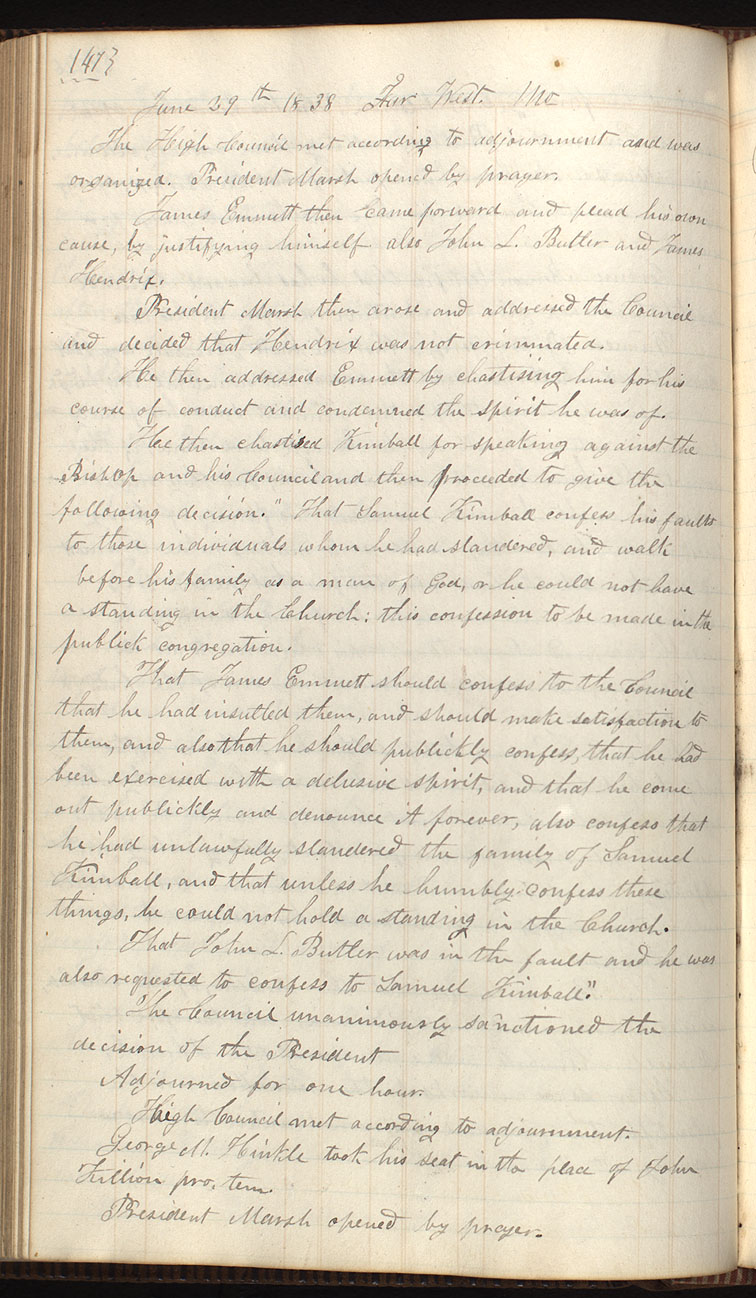 147}
June 29th 1838 Far West. Mo
The High Council met according to adjournment and was
organized. President Marsh opened by prayer.
James Emmett then came forward and plead his own
cause, by justifying himself also John L. Butler and James
Hendrix.
President Marsh then arose and addressed the Council
and decided that Hendrix was not criminated.
He then addressed Emmett by chastising him for his
course of conduct and condemned the spirit he was of.
He then chastised Kimball for speaking against the
Bishop and his Council and then proceeded to give the
following decision." That Samuel Kimball confess his faults
to those individuals whom he had slandered, and walk
before his family as a man of God, or he could not have
a standing in the Church: this confession to be made in the
publick congregation.
That James Emmett should confess to the Council
that he had insulted them, and should make satisfaction to
them, and also that he should publickly confess, that he had
been exercised with a delusive spirit, and that he come
out publickly and denounce it forever, also confess that
he had unlawfully slandered the family of Samuel
Kimball, and that unless he humbly confess these
things, he could not hold a standing in the Church.
That John L. Butler was in the fault and he was
also requested to confess to Samuel Kimball".
The Council unanimously sanctioned the
decision of the President
Adjourned for one hour.
High Council met according to adjournment.
George M. Hinkle took his seat in the place of John
Killion pro. tem.
President Marsh opened by prayer.